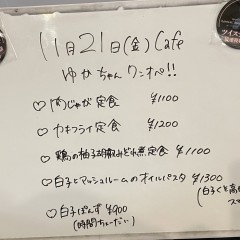 11月21日(金) Cafe
ゆかちゃん ワンオペ!!
♡ 肉じゃが定食 ¥1100
♡ カキフライ定食 ¥1200
♡ 鶏の柚子胡椒みぞれ煮定食 ¥1100
♡ 白子とマッシュルームのオイルパスタ ¥1300
(白子くと高
♡ 白子ぽんず ¥900
(時間ちょーだい)